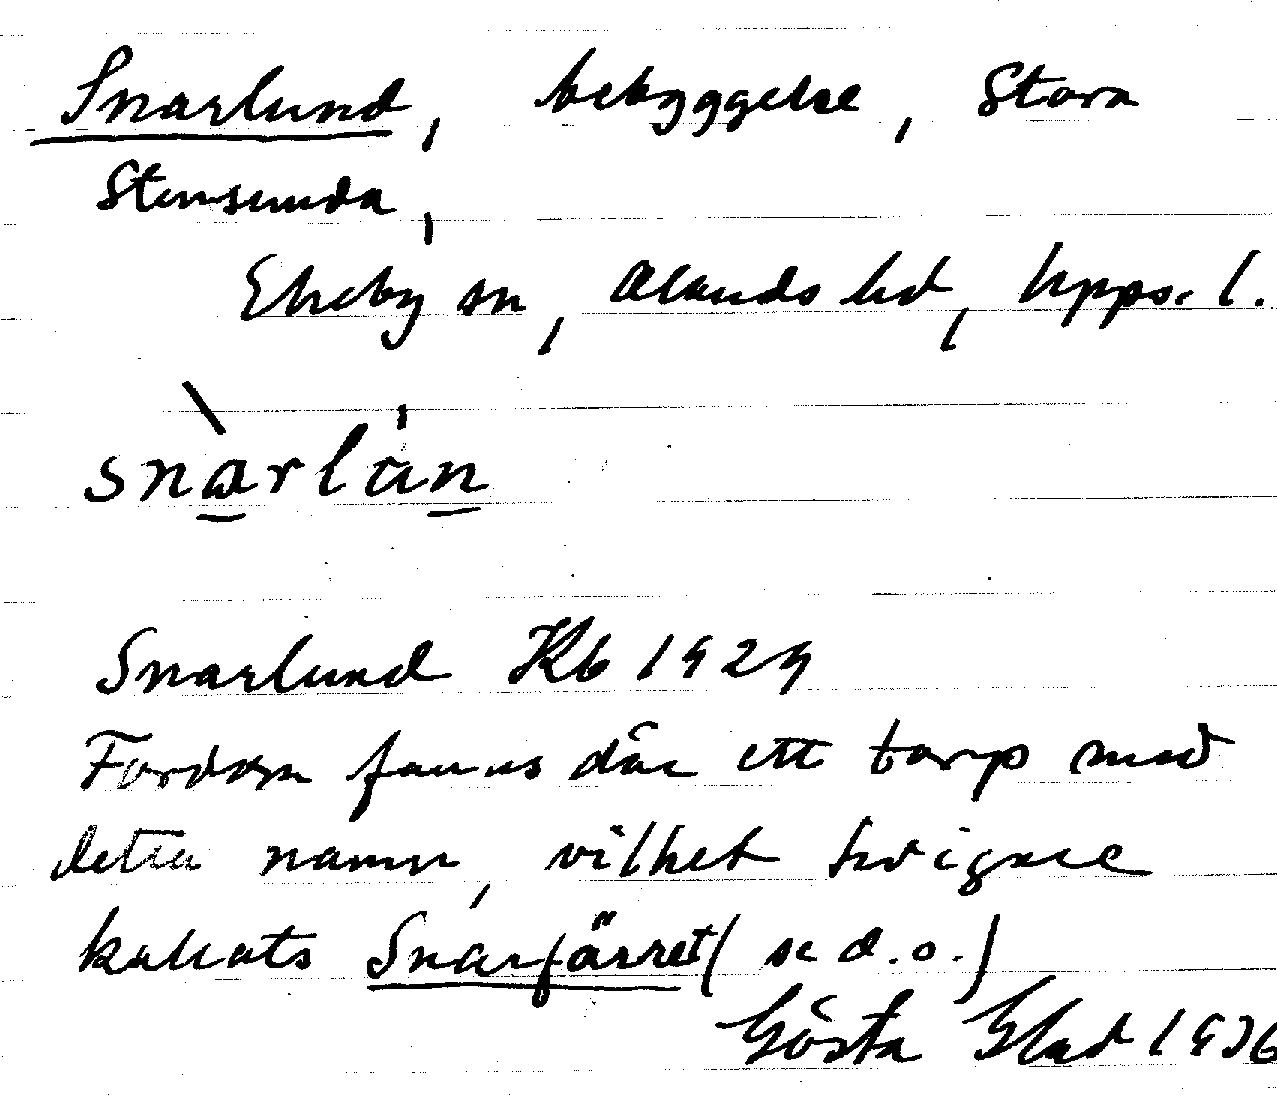 Snarlund, bebyggelse, Stora
Stensunda,
Ekeby sn, Olands hd, Upps. l.
snarlun
Snarlund Kb 1929
Fordom fanns där ett torp med
detta namn, vilket tidigare
kallats Snarfärret (se d.o.)
Gösta Glad 1936